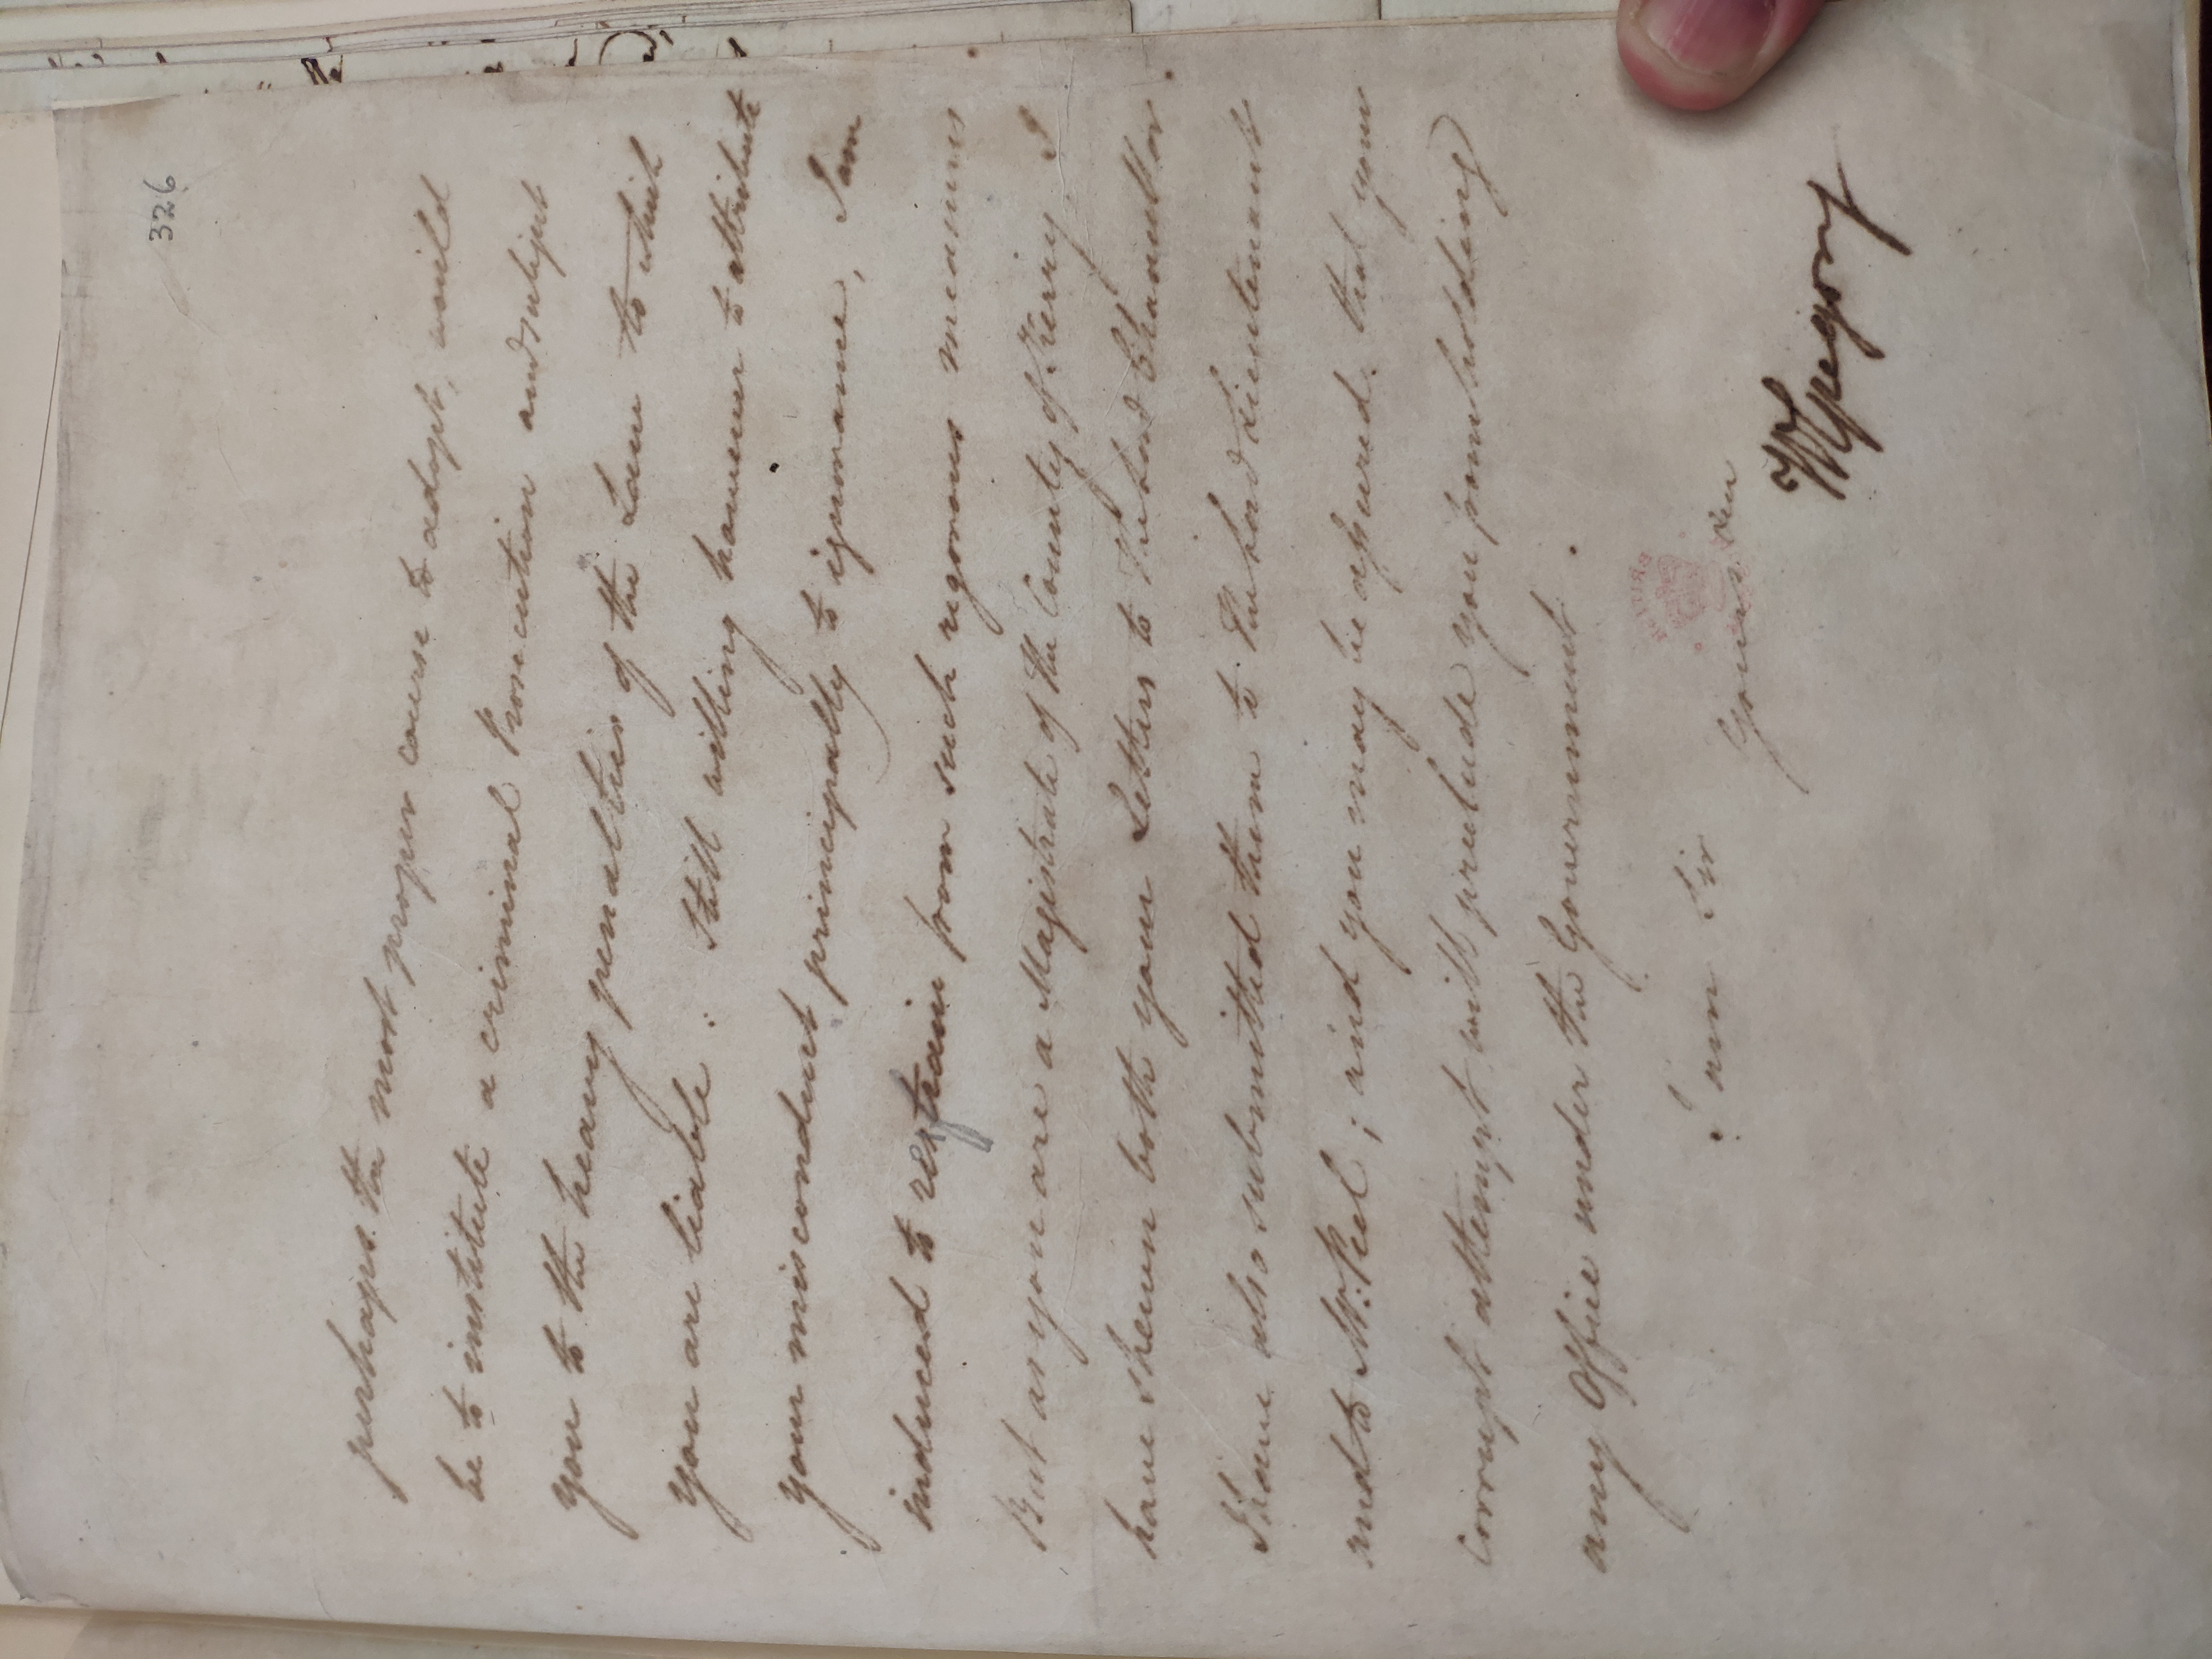 326
perhaps the most proper course to adopt, would
be to institute a criminal Prosecution and subject
you to the heavy penalties of the Law to which
you are liable: Still willing however to attribute
your misconduct principally to ignorance, I am
induced to refrain from such rigorous measures
But as you are a Magistrate of the County of Kerry I
have shewn both your Letters to The Lord Chancellor.
I have also submitted them to The Lord Lieutenant
and to Mr. Peel; and you may be assured, that your
corrupt attempt will preclude you from holding
any Office under the Government.
I am Sir
Yours &c
W Gregory